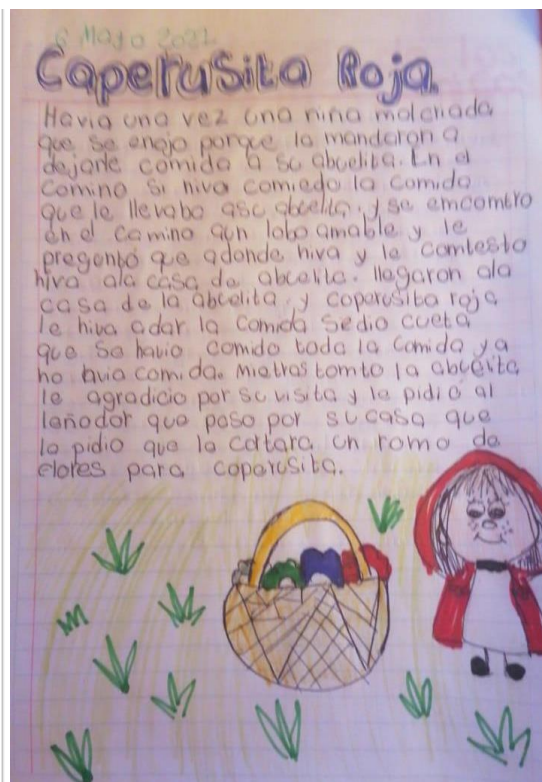 6 Mayo 2021
Caperusita Roja.
Havia una vez una niña malcriada
que se enojo porque la mandaron a
dejarle comida a su abuelita. En el
camino si hiva comiedo la comida
que le llevaba asu abuelita, y se emcomtro
en el camino aun lobo amable y le
pregontó que adonde hiva y le comtesto
hiva ala casa de abuelita. llegaron ala
casa de la abuelita. y coperusita roja
le hiva adar la comida sedio cueta
que se havio comido toda la comida ya
no avia comida. Mietras tomto la abuelita
le agradicio por su visita y le pidió al
leñador que paso por su casa que
lo pidio que la cortara un romo de
flores para coperusita.